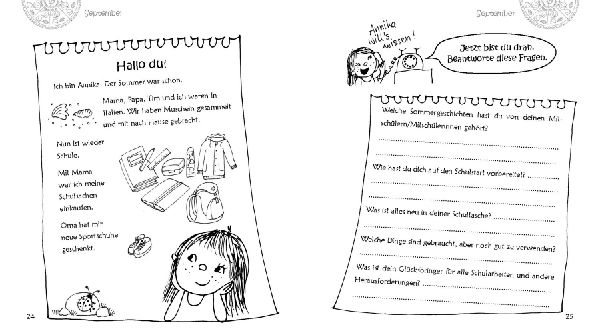 September
Hallo du!
Ich bin Annika. Der Sommer war schön.
Mama, Papa, Tim und ich waren in
Italien. Wir haben Muscheln gesammelt
und mit nach Hause gebracht.
Nun ist wieder
Schule.
Mit Mama
war ich meine
Schulsachen
einkaufen.
Oma hat mir
neue Sportschuhe
geschenkt.
24
September
Annika
will's
wissen!
Jetzt bist du dran.
Beantworte diese Fragen.
Welche Sommergeschichten hast du von deinen Mit-
schülern/Mitschülerinnen gehört?
Wie hast du dich auf den Schulstart vorbereitet?
Was ist alles neu in deiner Schultasche?
Welche Dinge sind gebraucht, aber noch gut zu verwenden?
Was ist dein Glücksbringer für alle Schularbeiten und andere
Herausforderungen?
25